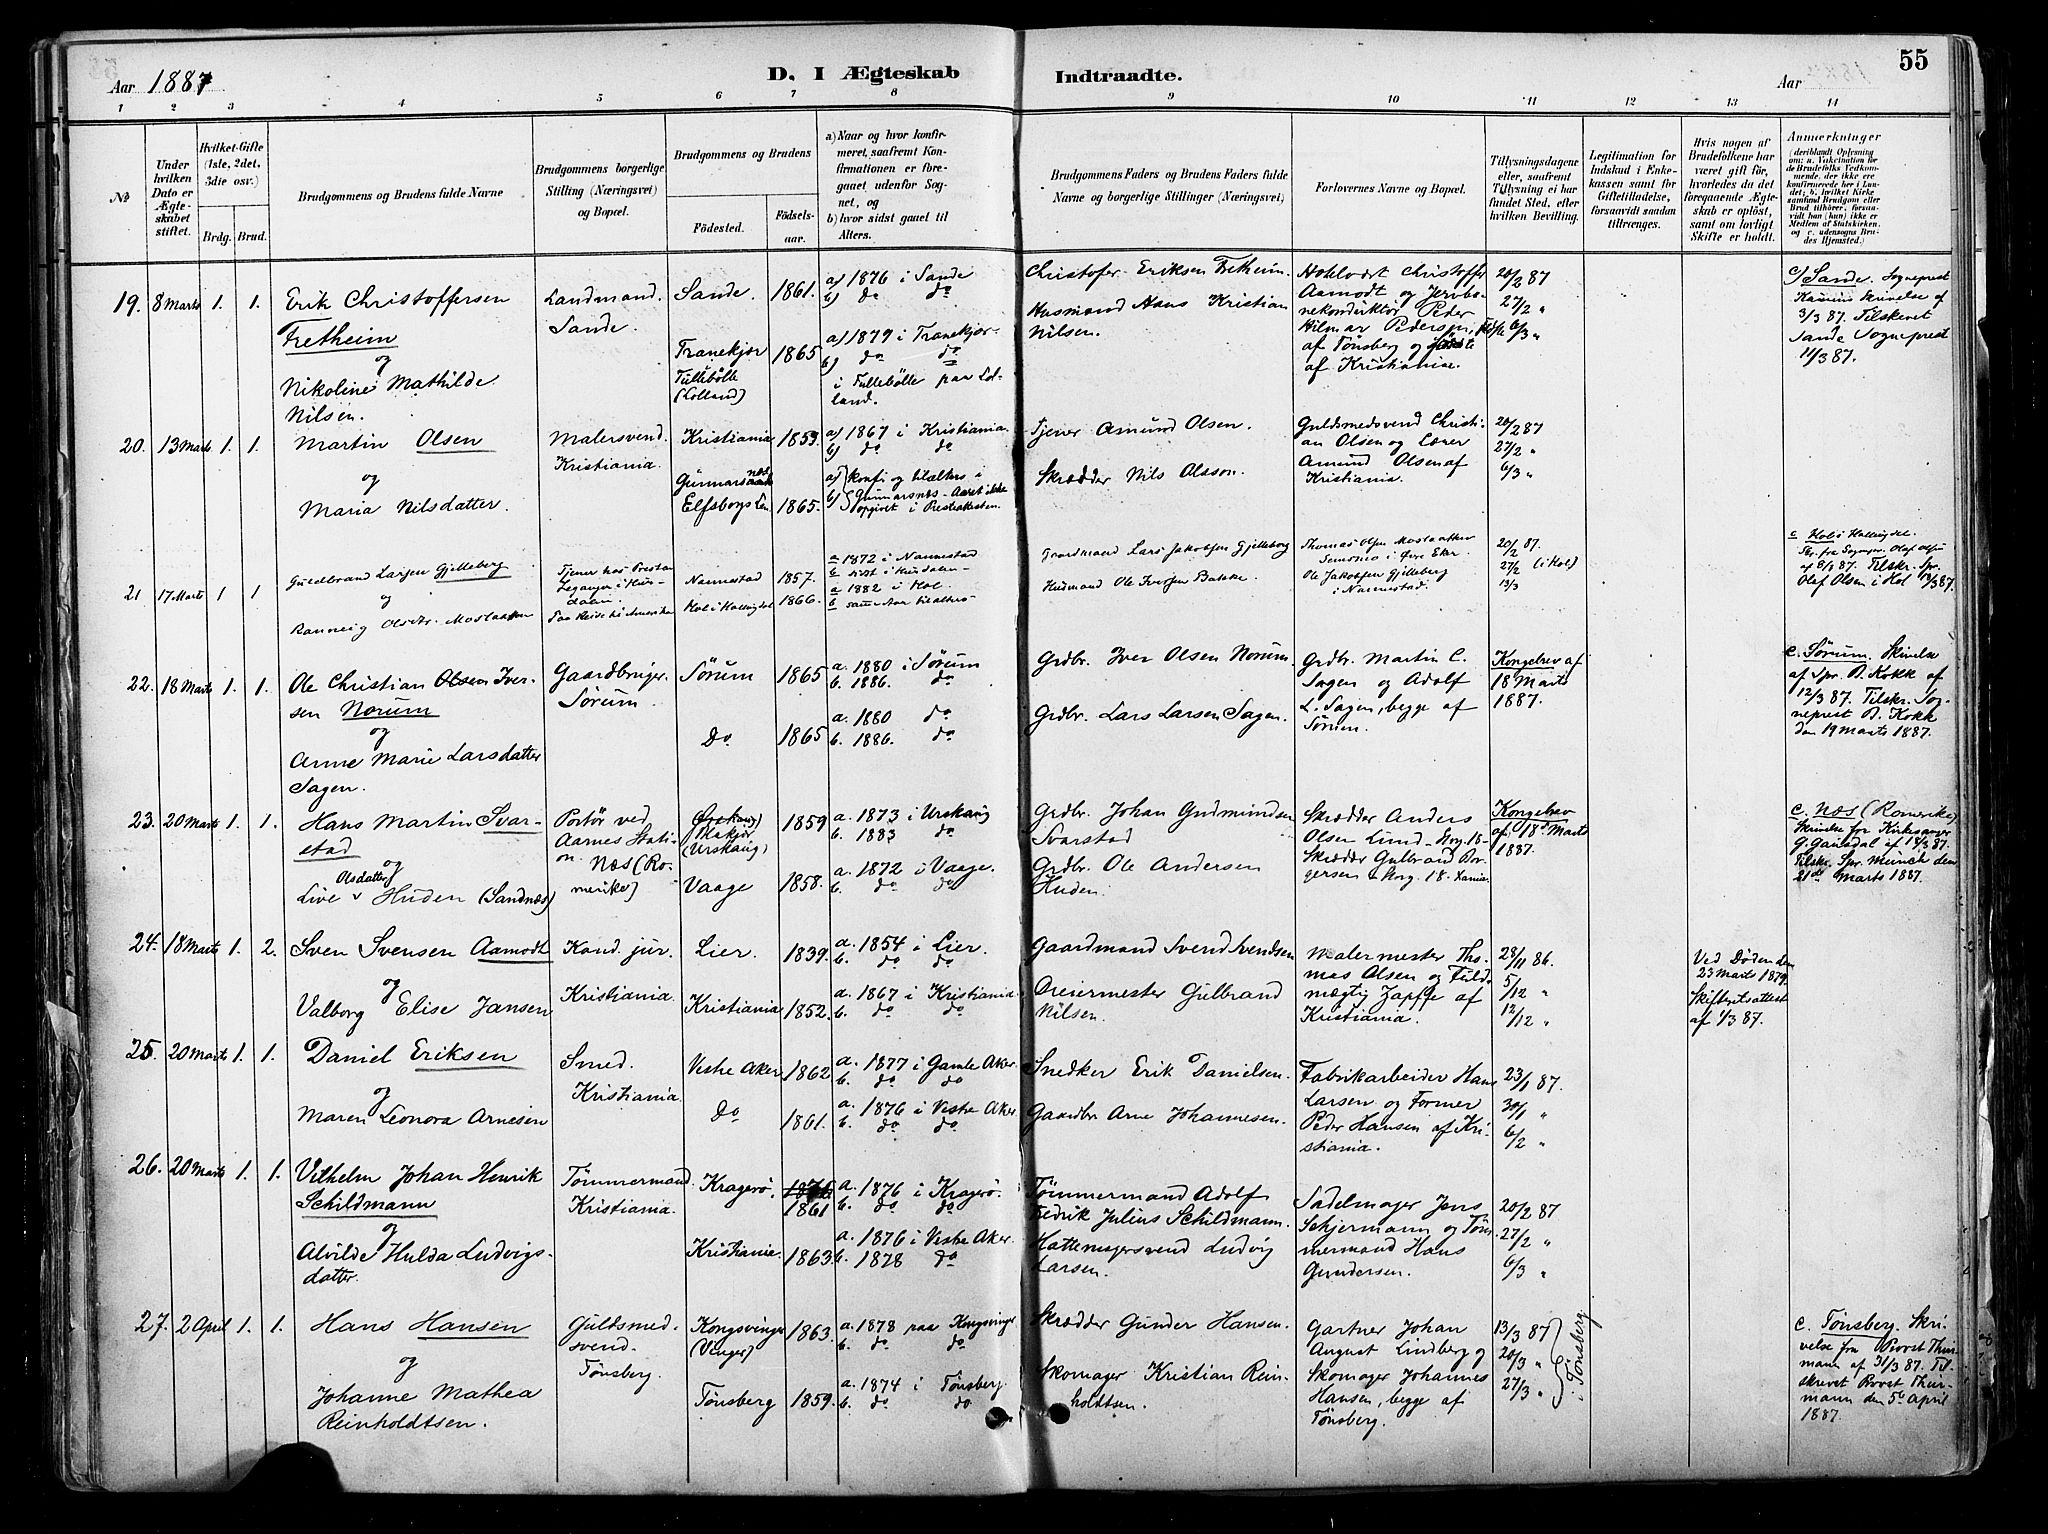 55
Aar 1887
D. I Ægteskab Indtraadte.
Aar
1 2 3 4 5 6 7 8 9 10 11 12 13 14
No
Under hvilken Dato er Ægteskabet stiftet.
Hvilket-Gifte (1ste, 2det, 3die osv.)
Brdg. Brud.
Brudgommens og Brudens fulde Navne
Brudgommens borgerlige Stilling (Næringsvei) og Bopæl.
Brudgommens og Brudens
Födested.
Födsels-aar.
a) Naar og hvor konfirmeret, saafremt Konfirmationen er foregaaet udenfor Sognet, og
b) hvor sidst gaaet til Alters.
Brudgommens Faders og Brudens Faders fulde Navne og borgerlige Stillinger (Næringsvei)
Forlovernes Navne og Bopæl.
Tillysningsdagene eller, saafremt Tillysning ei har fundet Sted, efter hvilken Bevilling.
Legitimation for Indskud i Enkekassen samt for Giftetilladelse, forsaavidt saadan tiltrænges.
Hvis nogen af Brudefolkene har været gift før, hvorledes da det foregaaende Ægteskab er oplöst, samt om lovligt Skifte er holdt.
Anmerkninger
(deriblandt Oplysning om: a. Vakcination för de Brudefolks Vedkommende, der ikke ere konfirmerede her i Landet; b. hvilket Kirkesamfund Brudgom eller Brud tilhörer, forsaavidt han (hun) ikke er Medlem af Statskirken, og c. udensogns Brudes Hjemsted.)
19. 8 Marts 1. 1.
Erik Christoffersen
Fretheim
og
Nikoline Mathilde
Nilsen.
Landmand.
Sande.
Sande. 1861.
a) 1876 i Sande
b) do do
Tranekjør
Tullebølle
(Lolland)
1865
a) 1879 i Tranekjør
b) do do
i Tullebölle paa Lolland.
Christofer Eriksen Fretheim.
Husmand Hans Kristian
Nilsen.
Hotelvært Christoffer
Aamodt og Jernbanekonduktør Peder
Hilmar Pedersen, første
af Tønsberg og sidste
af Kristiania.
20/2 87
27/2 "
6/3 "
c) Sande. Sogneprest
Skrivelse af
3/3 87. Tilskrevet
Sande Sogneprest
11/3 87.
20. 13 Marts 1. 1.
Martin Olsen
og
Maria Nilsdatter.
Malersvend.
Kristiania.
Kristiania 1859.
a) 1867 i Kristiania.
b) do do
Gunnarsnæs
Elfsborgs Len. 1865.
a) konf. og til alters i
b) Gunnarsnæs - Aaret ikke
opgivet i Presteattesten.
Tjener Amund Olsen.
Skrædder Nils Olsson.
Guldsmedsvend Christian Olsen og Lærer
Amund Olsen af
Kristiania.
20/2 87
27/2 "
6/3 "
21 17 Marts 1 1
Guldbrand Larsen Gjelleberg
og
Ranneig Olsdtr. Moslaatten
Tjener hos Presten
i Hurdalen.
Paa Reise til Amerika
Nannestad 1857.
Hol i Hallingdal 1866.
a 1872 i Nannestad
b sidst i Hurdalen
a 1882 i Hol
b samme Aar til alters
Gaardmand Lars Jakobsen Gjelleberg
Husmand Ole Iversen Bakke
Thomas Olsen Moslaatten
i Øvre Eker
Ole Jakobsen Gjelleberg
i Nannestad.
20/2 87.
27/2 (i Hol)
13/3
c Hol i Hallingdal.
Skr. fra Sogepr. Olaf Olsen
af 8/3 87. Tilskr. Spr.
Olaf Olsen i Hol 19/3 87.
22. 18 Marts 1. 1.
Ole Christian Olsen Iversen Norum
og
Anne Marie Larsdatter
Sagen.
Gaardbruger.
Sørum.
Sørum 1865
a. 1880 i Sørum
b. 1886. do
Do 1865
a. 1880 do
b. 1886. do
Grdbr. Iver Olsen Norum.
Grdbr. Lars Larsen Sagen.
Grdbr. Martin C.
Sagen og Adolf
L. Sagen, begge af
Sørum.
Kongebrev af
18 Marts
1887.
c. Sørum. Skrivelse
af Spr. B. Kokk af
12/3 87. Tilskr. Sogneprest B. Kokk
den 19 Marts 1887.
23. 20 Marts 1. 1.
Hans Martin Svarstad
og
Live Olsdatter Huden (Sandnæs)
Portør ved
Aarnes Station.
Næs (Romerike)
Blakjer
(Urskaug) 1859
a. 1873 i Urskaug
b. 1883 do
Vaage 1858.
a. 1872 i Vaage.
b. do do
Grdbr. Johan Gudmundsen
Svarstad
Grdbr. Ole Andersen
Huden.
Skrædder Anders
Olsen Lund - Storg. 18 -
Skrædder Gulbrand Borgersen - Storg. 18. Xania.
Kongebrev
af 18de Marts
1887.
c. Næs (Romerike)
Skrivelse for Kirkesanger
G. Gausdal af 18/3 87.
Tilskr. Spr. Münch den
21de Marts 1887.
24. 18 Marts 1. 2.
Sven Svensen Aamodt
og
Valborg Elise Jansen
Kand. jur.
Kristiania.
Lier. 1839.
a. 1854 i Lier.
b. do do
Kristiania 1852.
a. 1867 i Kristiania.
b. do do
Gaardmand Svend Svendsen
Dreiermester Gulbrand
Nilsen.
Malermester Thomas Olsen og Fuldmægtig Zapffe af
Kristiania.
28/11 86.
5/12 "
12/12 "
Ved Døden den
23 Marts 1879.
Skifteretsattest
af 1/3 87.
25. 20 Marts 1. 1.
Daniel Eriksen
og
Maren Leonora Arnesen
Smed.
Kristiania
Vestre Aker 1862
a. 1877 i Gamle Aker
b. do do
Do 1861.
a. 1876 i Vestre Aker
b. do do
Snedker Erik Danielsen.
Gaardbr Arne Johannesen.
Fabrikarbeider Hans
Larsen og Former
Peder Hansen af Kristiania.
23/1 87.
30/1 "
6/2 "
26. 20 Marts 1. 1.
Vilhelm Johan Henrik
Schildmann
og
Alvilde Hulda Ludvigsdatter.
Tømmermand.
Kristiania.
Kragerø. 1876 1861
a. 1876 i Kragerø.
b. do do
Kristiania. 1863
a. 1876 i Vestre Aker.
b. 1878 do
Tømmermand Adolf
Fredrik Julius Schildmann.
Hattemagersvend Ludvig
Larsen.
Sadelmager Jens
Schjermann og Tømmermand Hans
Gundersen.
20/2 87
27/2 "
6/3 "
27. 2 April 1. 1.
Hans Hansen
og
Johanne Mathea
Reinholdtsen.
Guldsmedsvend.
Tønsberg.
Kongsvinger
(Vinger) 1863.
a. 1878 paa Kongsvinger
b. do do
Tønsberg 1859.
a. 1874 i Tønsberg.
b. do do
Skrædder Gunder Hansen.
Skomager Kristian Reinholdtsen.
Gartner Johan
August Lindberg og
Skomager Johannes
Hansen, begge af
Tønsberg.
13/3 87
20/3 "
27/3 "
i Tønsberg.
c. Tønsberg. Skrivelse fra Provst Thurmann af 31/3 87. Tilskrevet Provst Thurmann den 5te April
1887.